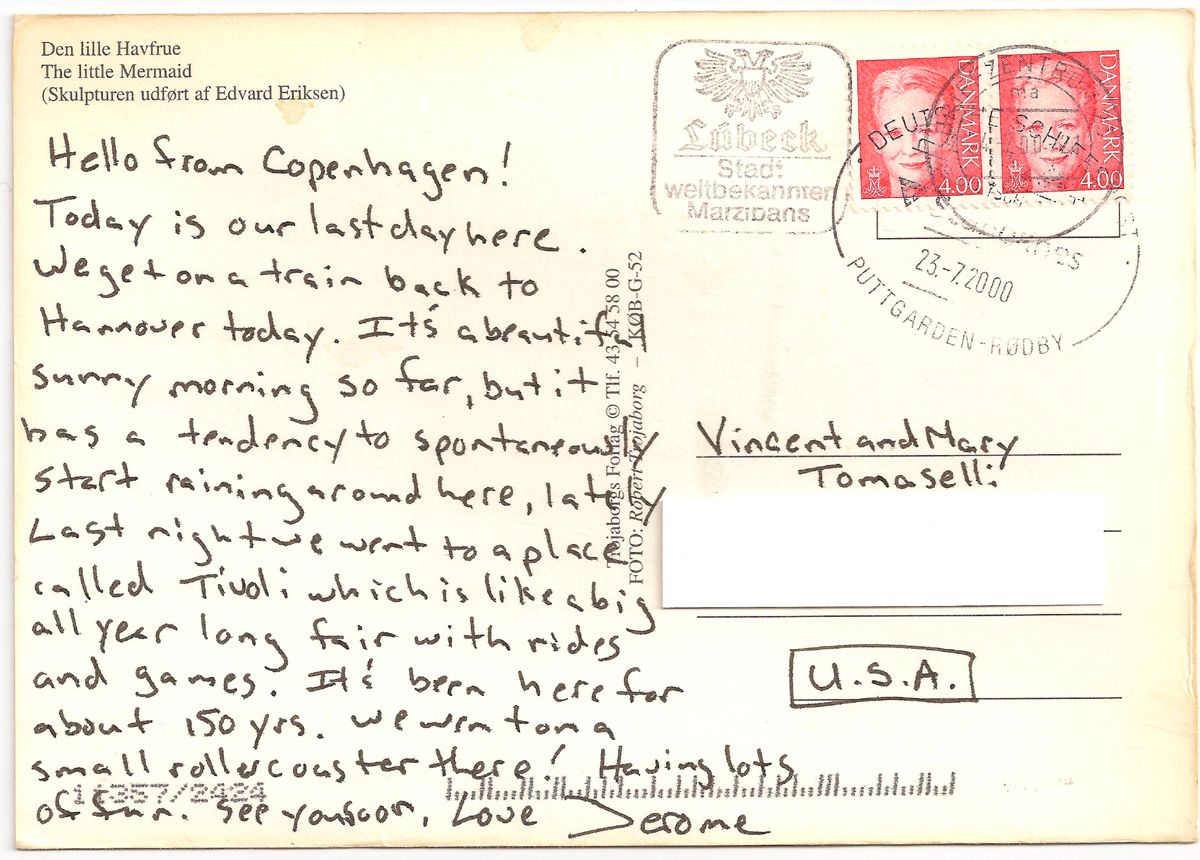 Den lille Havfrue
The little Mermaid
(Skulpturen udført af Edvard Eriksen)
Hello from Copenhagen!
Today is our last day here.
We get on a train back to
Hannover today. It's a beautiful
sunny morning so far, but it
has a tendency to spontaneously
start raining around here, lately
Last night we went to a place
called Tivoli which is like a big
all year long fair with rides
and games. It's been here for
about 150 yrs. We went on a
small rollercoaster there! Having lots
of fun. See you soon, Love Jerome
Trojaborgs Forlag © Tlf. 43 54 58 00
FOTO: Robert Trojaborg – KØB-G-52
Lübeck
Stadt
weltbekannten
Marzipans
DANMARK
4.00
DANMARK
4.00
DEUTSCHE
23.-7.2000
PUTTGARDEN-RØDBY
Vincent and Mary
Tomaselli
U.S.A.